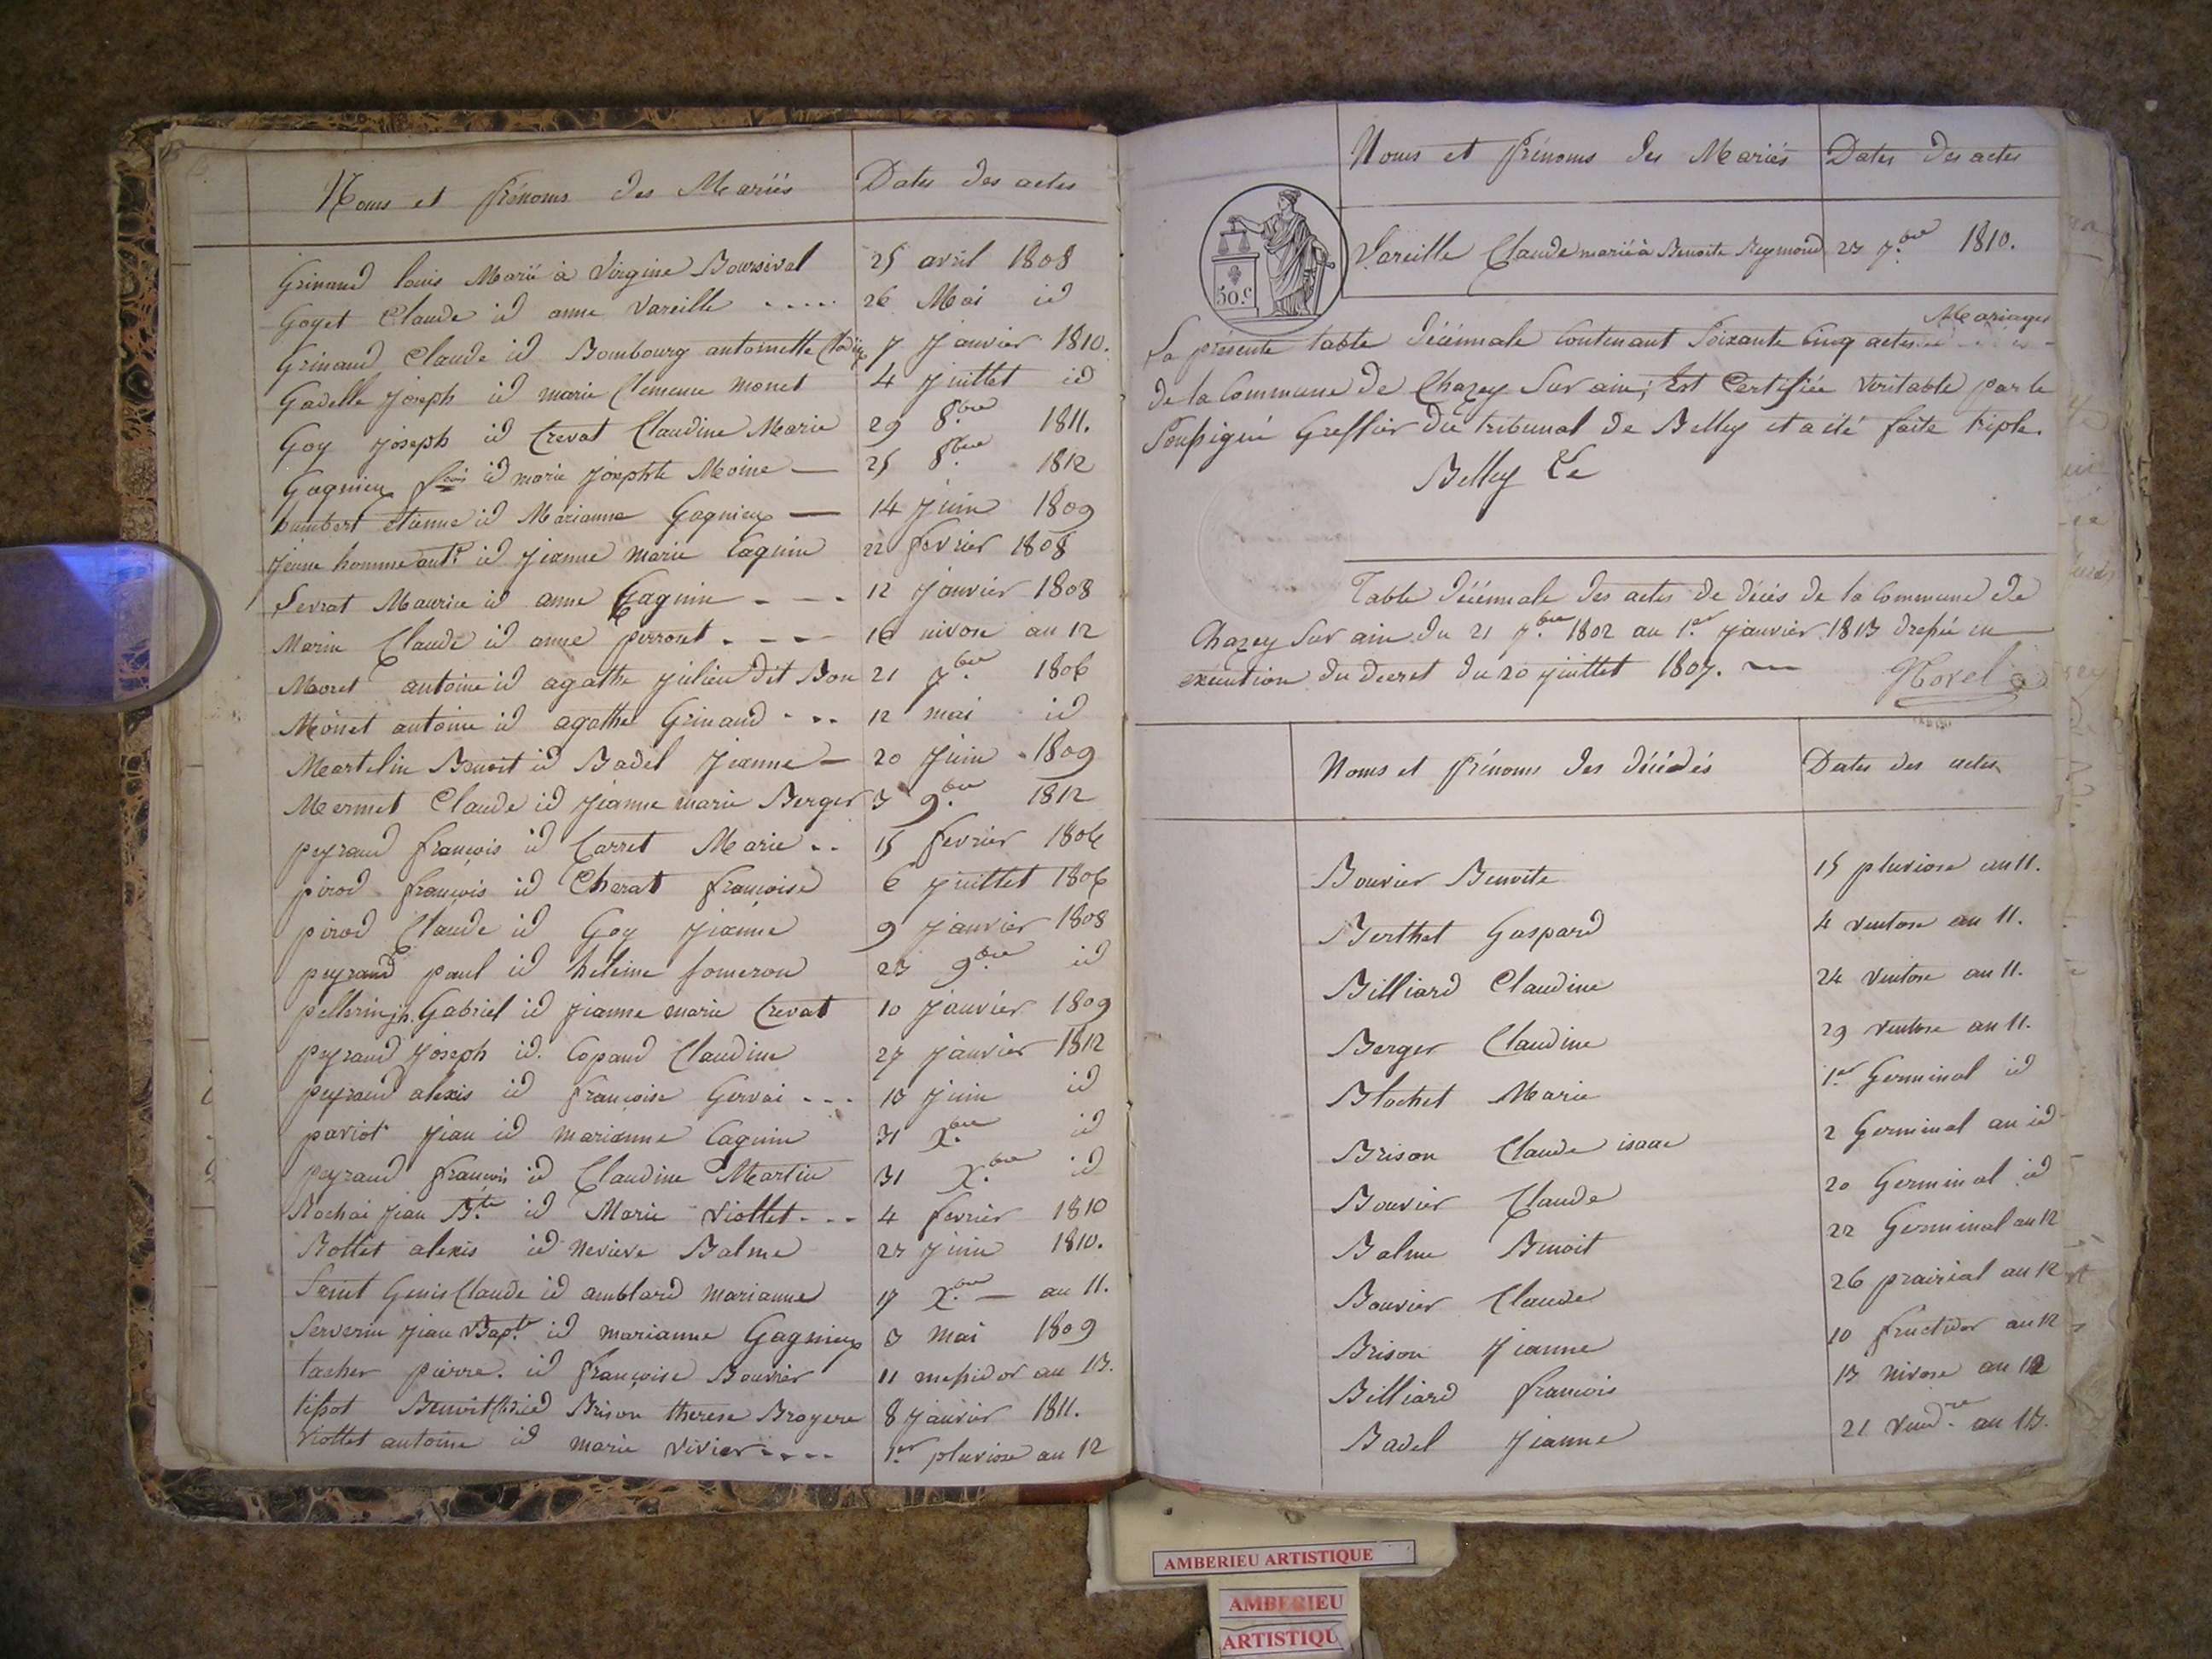 Noms et Prénoms des Mariés Dates des actes
Grinand louis Marié à Virgine Boursival 25 avril 1808
Goyet Claude id anne Vareille 26 Mai id
Grinand Claude id Bombourg antoinette 7 Janvier 1810.
Gadelle Joseph id marie Clemence monet 4 Juillet id
Goy Joseph id Crevat Claudine Marie 29 8.bre 1811.
Gagnieux fois id marie Josephte Moine 25 8bre 1812
humbert etienne id Marianne Gagnieux 14 Juin 1809
Jeune homme ant.e id Jeanne marie Caguin 22 fevrier 1808
Levrat Maurice id anne Gaguin 12 Janvier 1808
Marin Claude id anne perrout 16 nivose an 12
Moret antoine id agathe julien dit Bon 21 7.bre 1806
Monet antoine id agathe Grinand 12 mai id
Martelin Benoit id Badel Jeanne 20 Juin 1809
Mermet Claude id Jeanne marie Berger 3 9.bre 1812
peyraud françois id Carret Marie 15 fevrier 1806
pirod françois id Cherat françoise 6 juillet 1806
pirod Claude id Goy Jeanne 9 Janvier 1808
peyraud paul id heleine someron 23 9bre id
pellerin jh. Gabriel id Jeanne marie Crevat 10 Janvier 1809
peyraud Joseph id. Copand Claudine 27 Janvier 1812
peyraud alexis id françoise Gervai 13 Juin id
pariot Jean id marianne Caguin 31 X.bre id
peyraud françois id Claudine Martin 31 X.bre id
Rochai Jean B.te id Marie Viollet 4 fevrier 1810
Rollet alexis id nevieve Balme 27 Juin 1810.
Saint Genis Claude id amblard marianne 17 X.bre an 11.
Serverin Jean Bap.te id marianne Gagnieux 3 mai 1809
tacher pierre. id françoise Bouvier 11 messidor an 13.
tissot Benoit id Brison therese Broyere 8 Janvier 1811.
Viollet antoine id marie Vivier 1.er pluviose an 12
Noms et Prénoms des Mariés Dates des actes
50.c
Vareille Claude marié à Benoite Reymond 23 7.bre 1810.
Mariages
La présente table décénnale Contenant Soixante Cinq actes
de la Commune de Chazey Sur ain; Est Certifiée Véritable par le
Soussigné Greffier du tribunal de Belley et a été faite triple.
Belley Le
Table décénnale des actes de décés de la Commune de
Chazey Sur ain du 21 7.bre 1802 au 1.er Janvier 1813 dressée en
exécution du decret du 20 juillet 1807.
Noms et Prénoms des décédés Dates des actes
Bouvier Benoite 15 pluviose an 11.
Berthet Gaspard 4 ventose an 11.
Billiard Claudine 24 ventose an 11.
Berger Claudine 29 ventose an 11.
Blachet Marie 1.er Germinal id
Brison Claude isaac 2 Germinal an id
Bouvier Claude 20 Germinal id
Balme Benoit 22 Germinal an 12
Bouvier Claude 26 prairial an 12
Brison Jeanne 10 fructidor an 12
Billiard francois 13 nivose an 12
Badel Jeanne 21 Vend.re an 13.
AMBERIEU ARTISTIQUE
AMBERIEU
ARTISTIQU